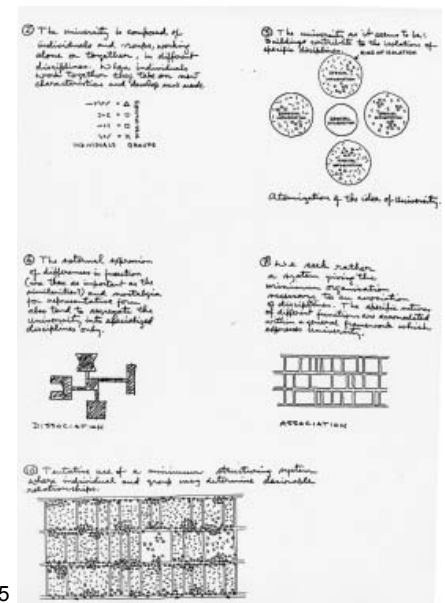 ② The university is composed of
individuals and groups, working
alone or together, in different
disciplines. When individuals
work together they take on new
characteristics and develop new needs
INDIVIDUALS GROUPS
③ The university as it seems to be:
Buildings contribute to the isolation of
specific disciplines.
RING OF ISOLATION
Atomization of the idea of University.
The external expression
of differences in function
(are these as important as the
similarities?) and nostalgia
for representative form
also tend to segregate the
University into specialized
disciplines only.
DISSOCIATION
We seek rather
a system giving the
minimum organization
necessary to an association
of disciplines. The specific natures
of different functions are accomodated
within a general framework which
expresses University.
ASSOCIATION
⑩ Tentative use of a minimum structuring system
where individual and group may determine desirable
relationships.
5